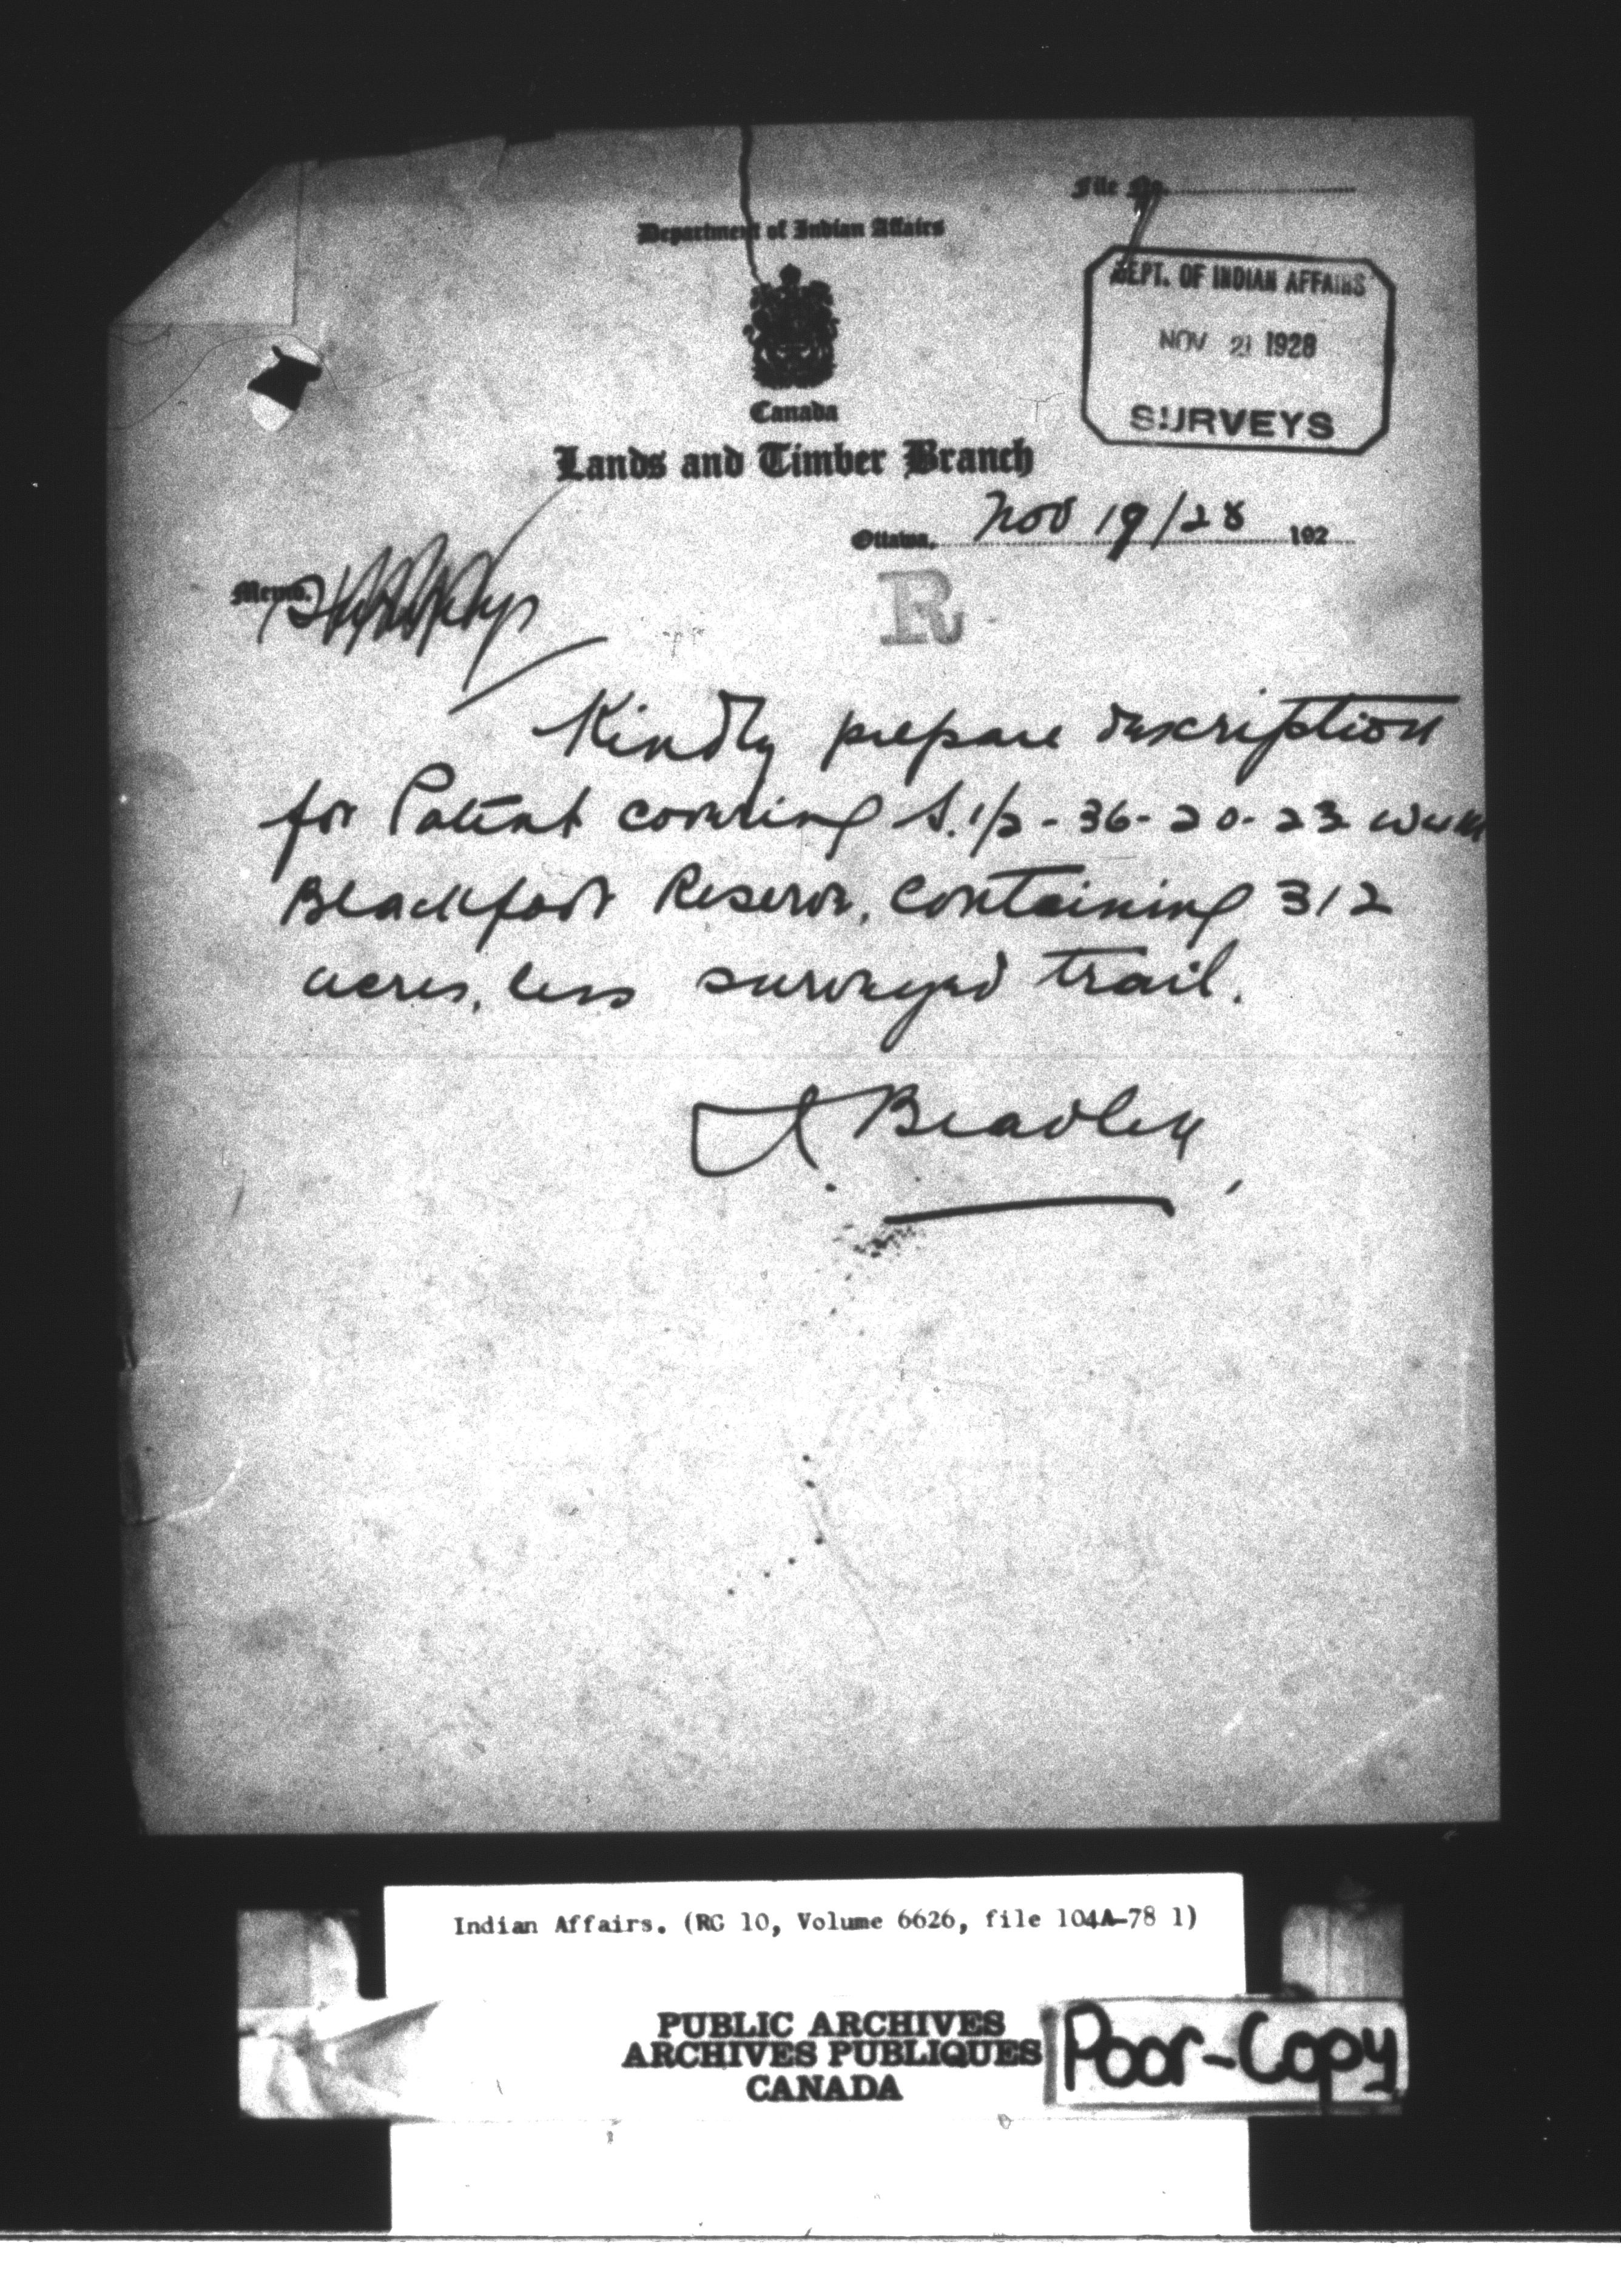 File No.
Department of Indian Affairs
DEPT. OF INDIAN AFFAIRS
NOV 21 1928
SURVEYS
Canada
Lands and Timber Branch
Ottawa, Nov 19/28 192
Memo.
R
Kindly prepare description
for Patent covering S.1/2 - 36 - 20 - 23 W4M
Blackfoot Reserve, containing 312
acres, less surveyed trail.
Bradley
Indian Affairs. (RG 10, Volume 6626, file 104A-78 1)
PUBLIC ARCHIVES
ARCHIVES PUBLIQUES
CANADA
Poor-Copy